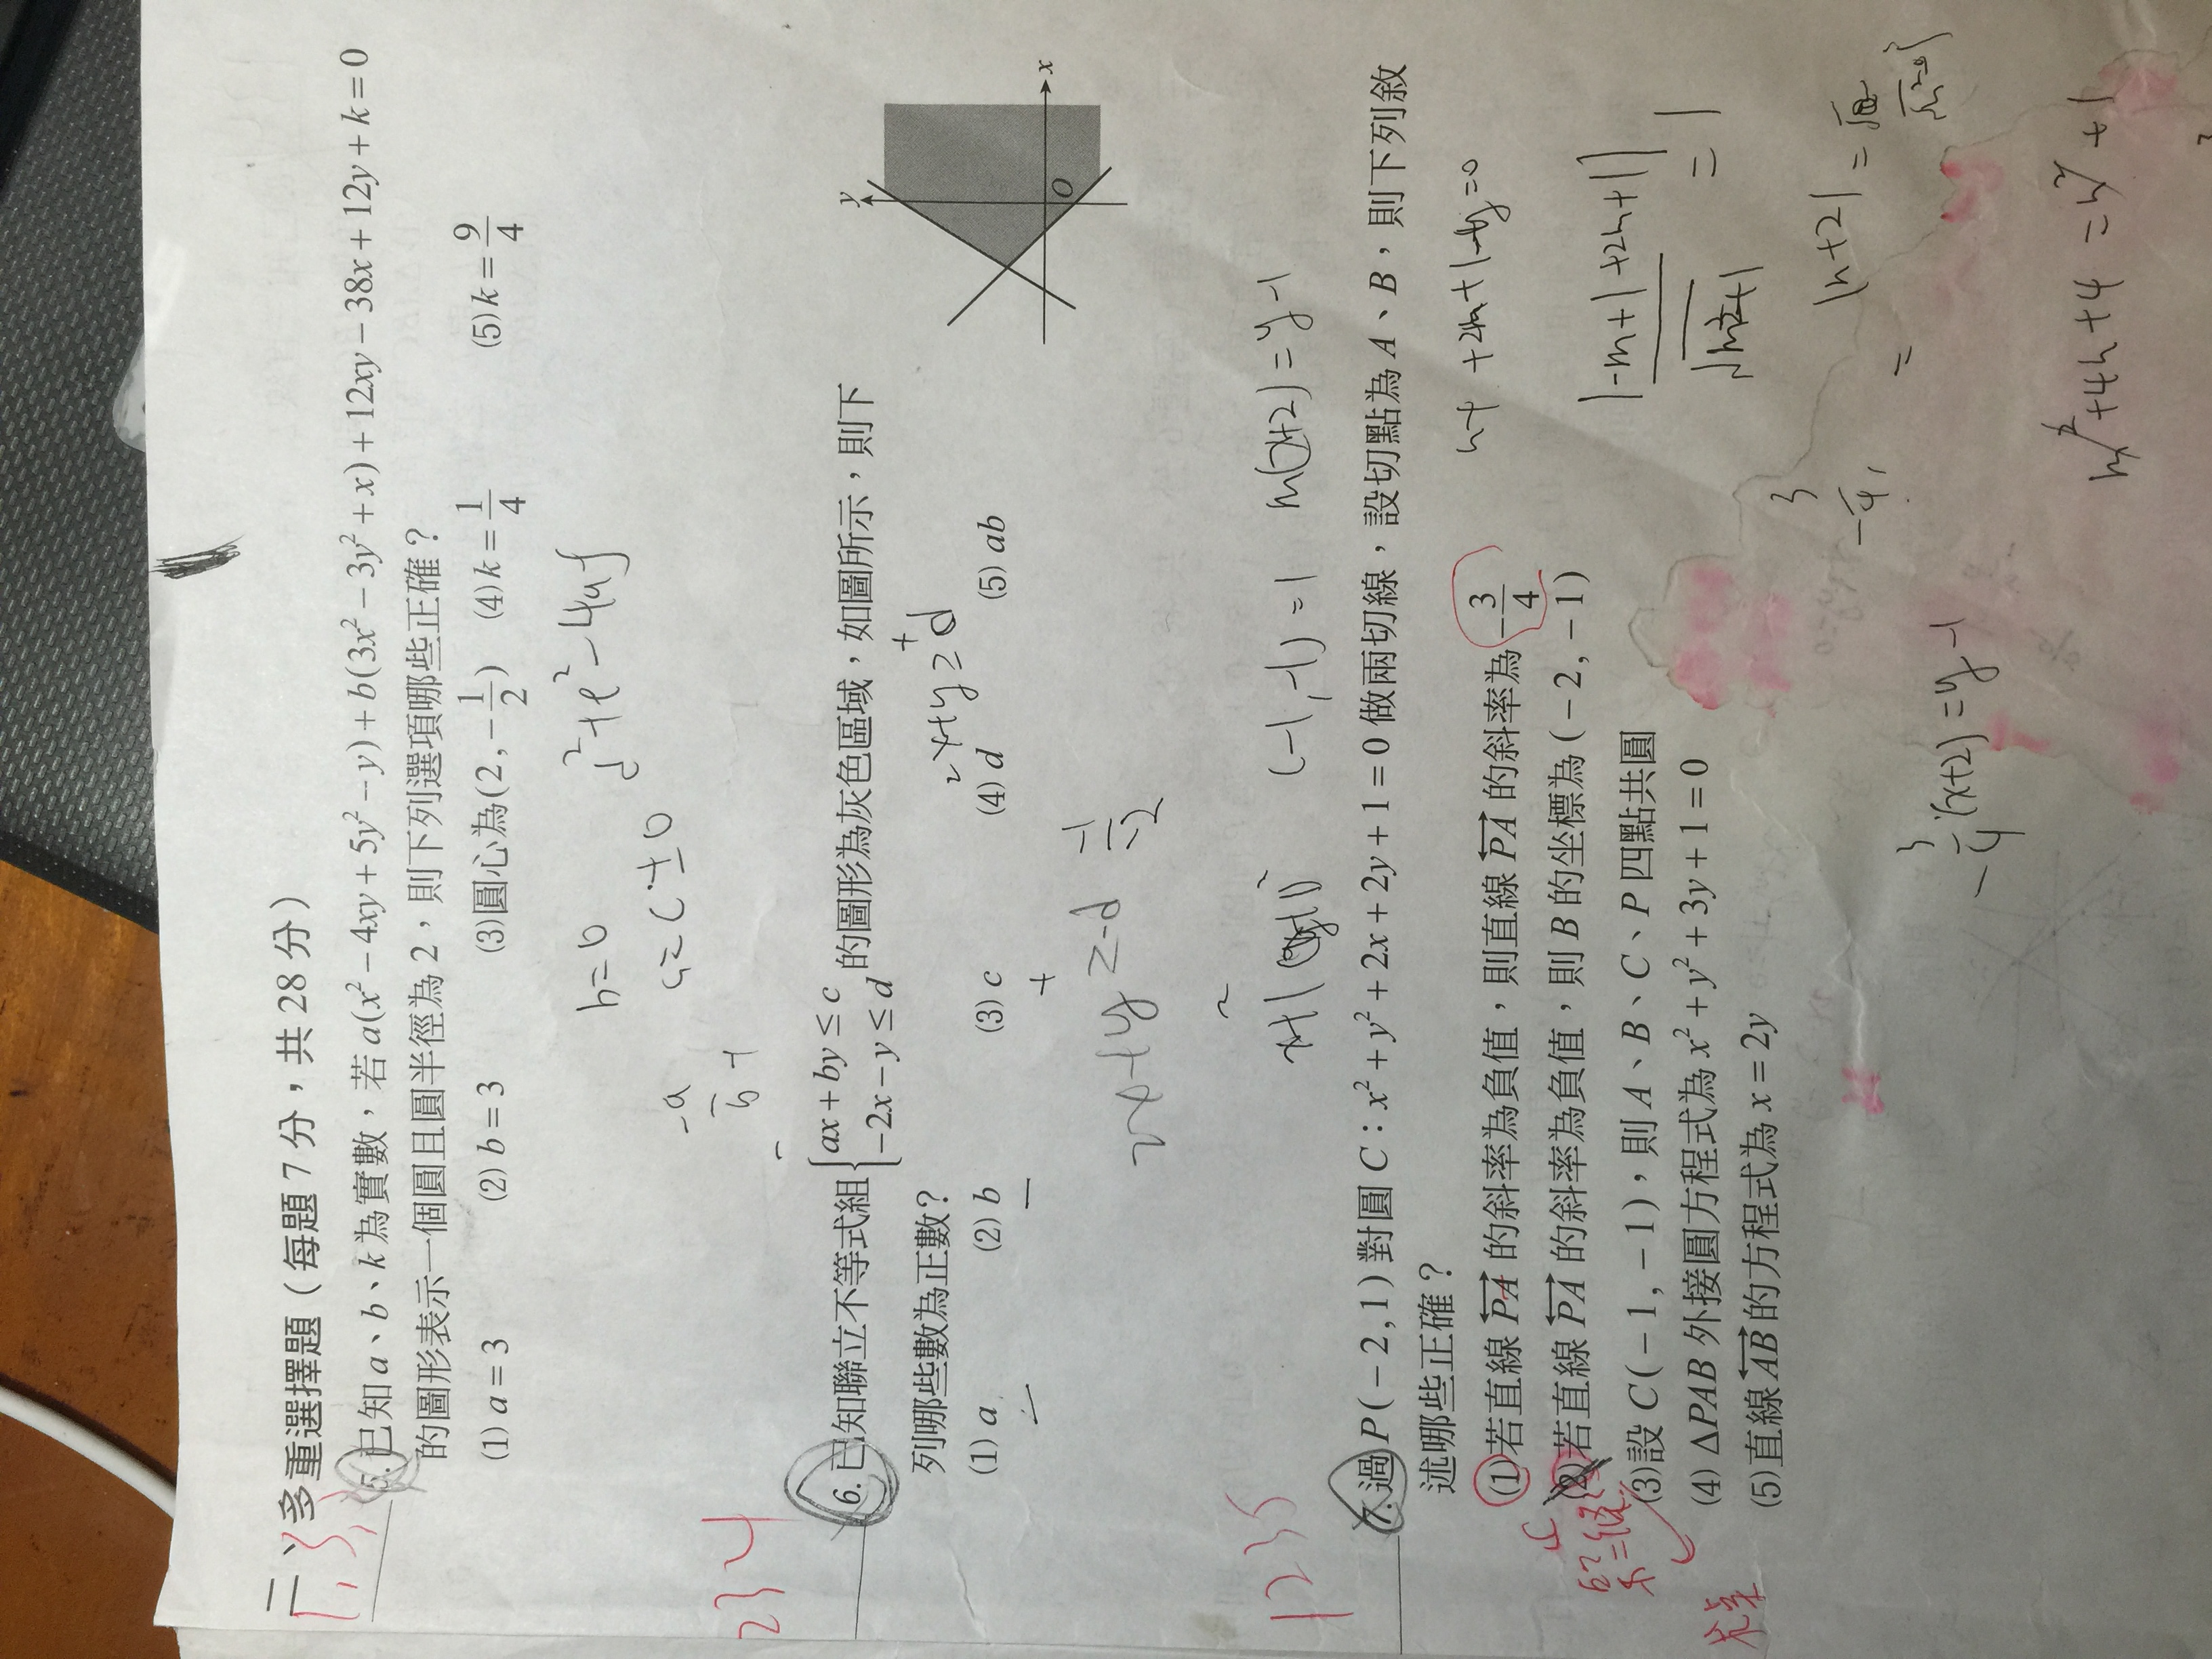 二、多重選擇題（每題 7 分，共 28 分）
1, 3,
5. 已知 a、b、k 為實數，若 a(x² − 4xy + 5y² − y) + b(3x² − 3y² + x) + 12xy − 38x + 12y + k = 0
的圖形表示一個圓且圓半徑為 2，則下列選項哪些正確？
(1) a = 3 (2) b = 3 (3)圓心為(2, −1/2) (4) k = 1/4 (5) k = 9/4
b=0
d²+e²−4af
a=c≠0
−a/b
234
6. 已知聯立不等式組 { ax + by ≤ c
−2x − y ≤ d 的圖形為灰色區域，如圖所示，則下
列哪些數為正數？
(1) a (2) b (3) c (4) d (5) ab
y
x
O
2x+y≥−d
1235
m(x+2)=y−1
7. 過 P(−2, 1) 對圓 C：x² + y² + 2x + 2y + 1 = 0 做兩切線，設切切點為 A、B，則下列敘
述哪些正確？
(1)若直線 PA 的斜率為負值，則直線 PA 的斜率為 −3/4
(2)若直線 PA 的斜率為負值，則 B 的坐標為 (−2, −1)
(3)設 C(−1, −1)，則 A、B、C、P 四點共圓
(4) ΔPAB 外接圓方程式為 x² + y² + 3y + 1 = 0
(5)直線 AB 的方程式為 x = 2y
|−m+1+2m+1|/√m²+1 = 1
|m+2| =
−3/4
−3/4(x+2)=y−1
m²+4m+4=m²+1